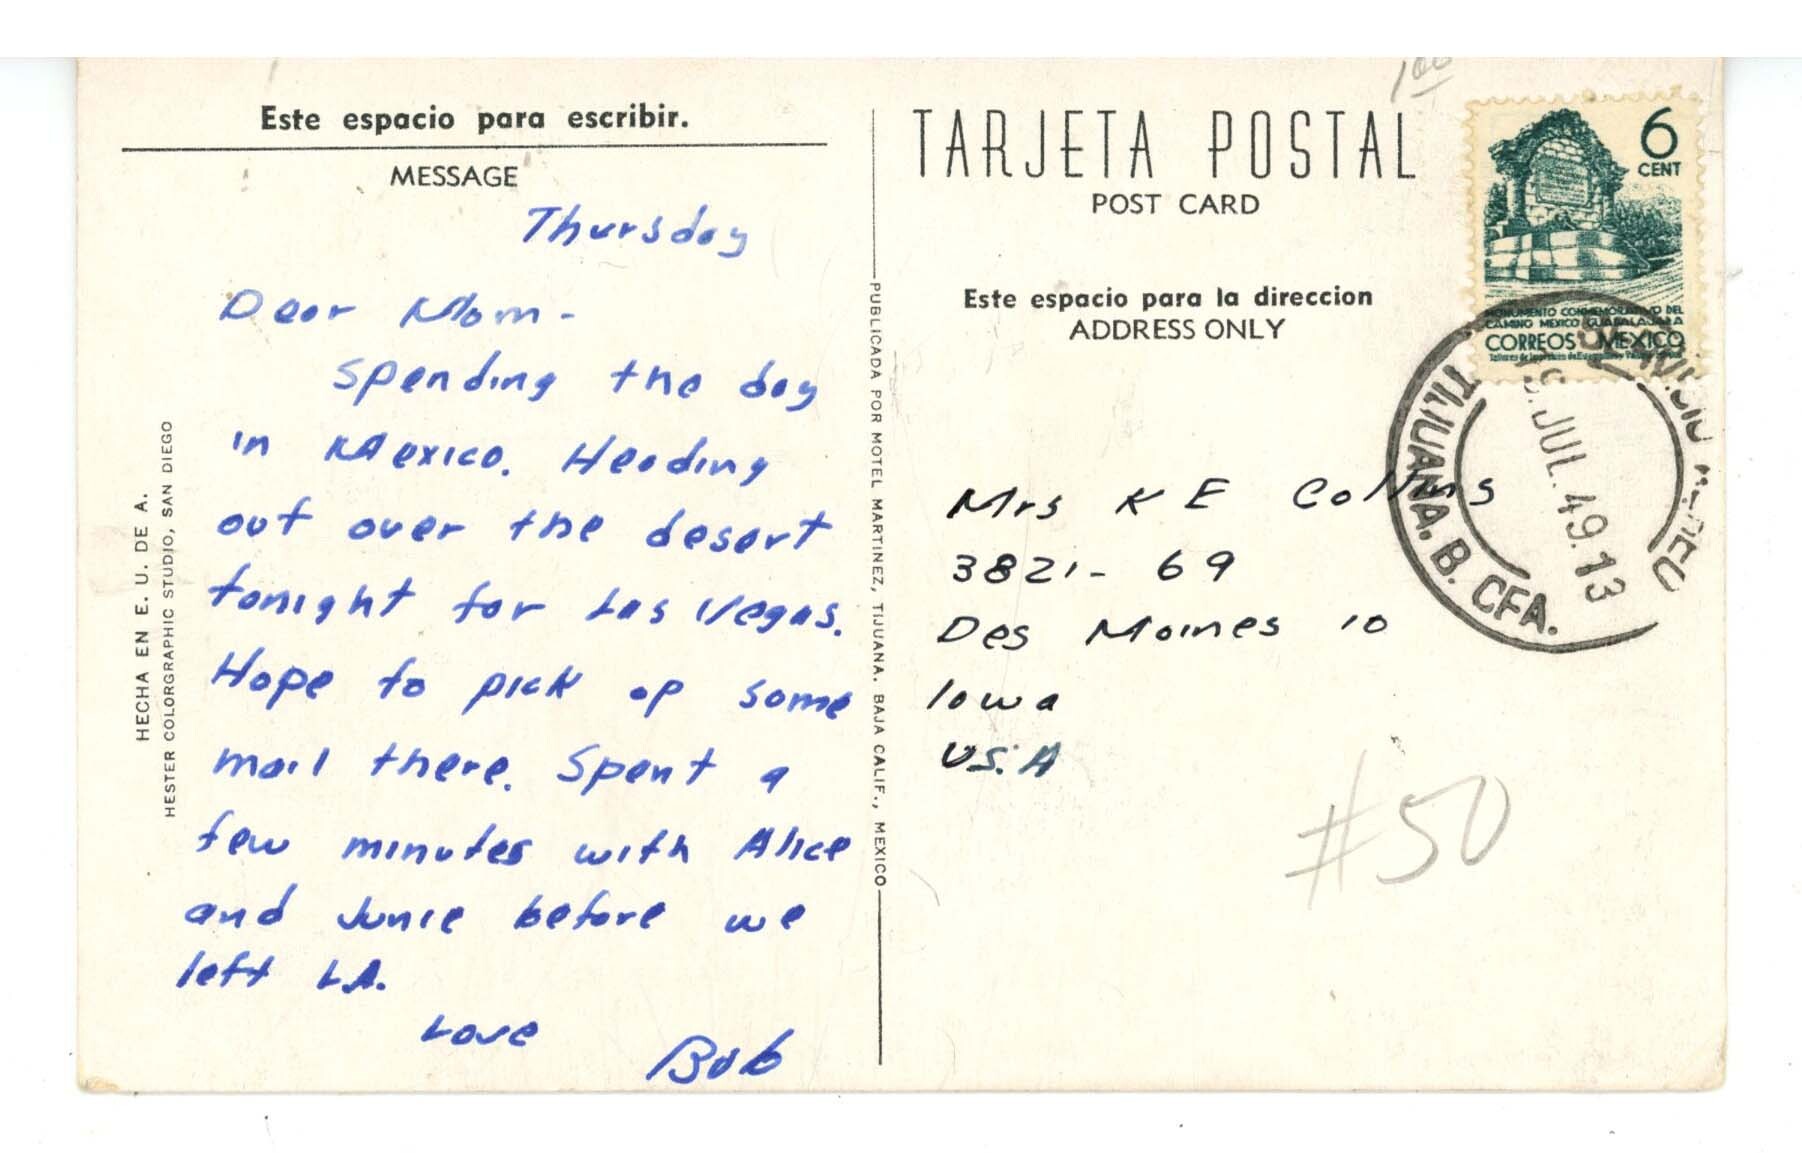 Este espacio para escribir.
MESSAGE
Thursday
Dear Mom-
Spending the day
in Mexico. Heading
out over the desert
tonight for Las Vegas.
Hope to pick up some
mail there. Spent a
few minutes with Alice
and Junie before we
left L.A.
Love
Bob
HECHA EN E. U. DE A.
HESTER COLORGRAPHIC STUDIO, SAN DIEGO
PUBLICADA POR MOTEL MARTINEZ, TIJUANA. BAJA CALIF., MEXICO
TARJETA POSTAL
POST CARD
Este espacio para la direccion
ADDRESS ONLY
1 00
6
CENT
MONUMENTO CONMEMORATIVO DEL
CAMINO MEXICO GUADALAJARA
CORREOS MEXICO
TIJUANA. B. CFA.
JUL. 49. 13
Mrs K E Collins
3821 - 69
Des Moines 10
Iowa
U.S.A
#50